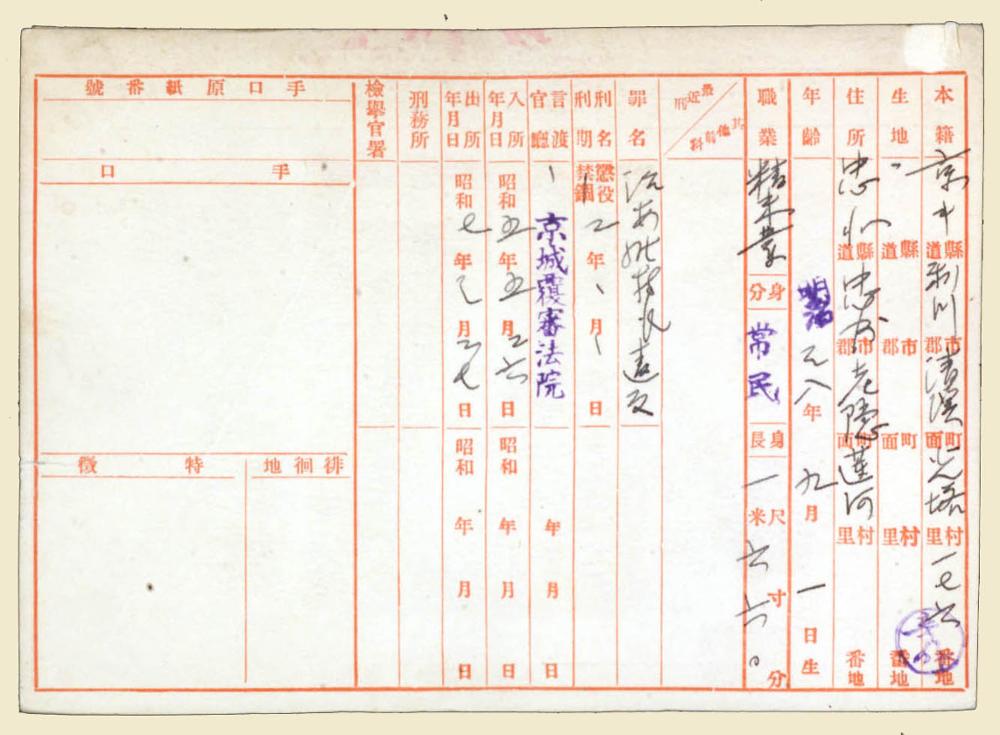 本籍 京 道縣 利川 郡市 面町 里村 一七六 番地
生地 〃 道縣 郡市 面町 里村 番地
住所 忠北 道縣 忠州 郡市 老隱 面町 蓮河 里村 番地
年齡 明治 年 九月 一日生
職業 精米業 身分 常民 身長 一米尺 六寸 六〇分
最近刑 其他前科
罪名 治安維持法違反
刑名 懲役 禁錮 刑期 二年 、月 、日
言渡官廳 、 京城覆審法院 年 月 日
入所年月日 昭和五年五月二六日 昭和 年 月 日
出所年月日 昭和七年 月 七日 昭和 年 月 日
刑務所
檢擧官署
手口原紙番號
手口
徘徊地
特徵